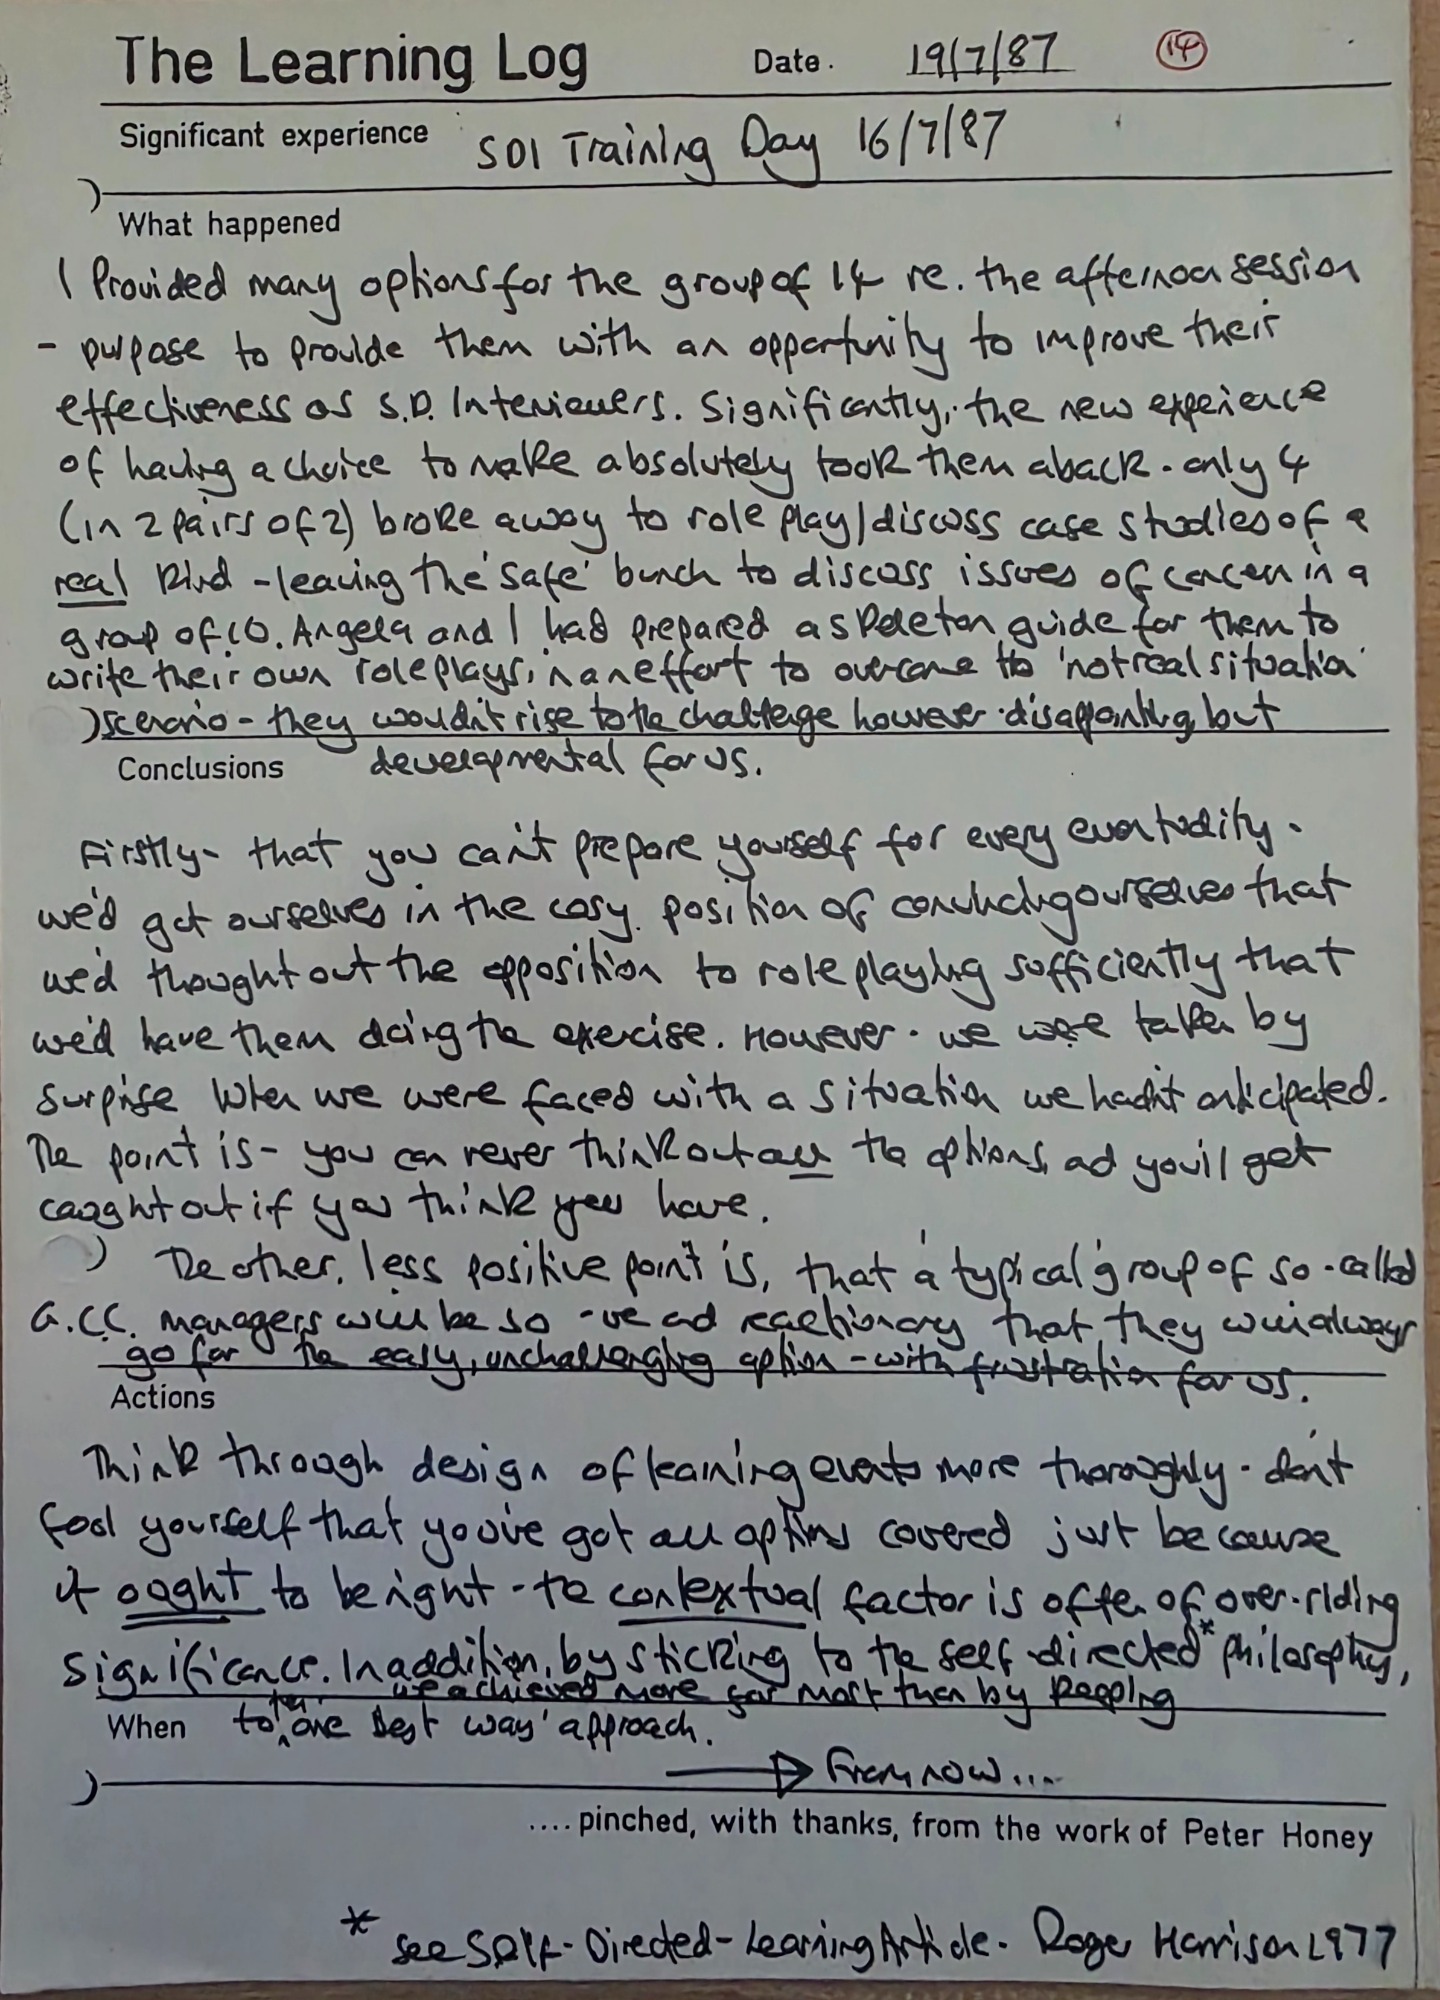 The Learning Log Date. 19/7/87 14
Significant experience SDI Training Day 16/7/87
What happened
I Provided many options for the group of 14 re. the afternoon session
- purpose to provide them with an opportunity to improve their
effectiveness as S.D. Interviewers. Significantly, the new experience
of having a choice to make absolutely took them aback - only 4
(in 2 pairs of 2) broke away to role play/discuss case studies of a
real kind - leaving the 'safe' bunch to discuss issues of concern in a
group of 10. Angela and I had prepared a skeleton guide for them to
write their own role plays, in an effort to overcome the 'not real situation'
scenario - they wouldn't rise to the challenge however - disappointing but
developmental for us.
Conclusions
Firstly - that you can't prepare yourself for every eventuality.
we'd got ourselves in the cosy position of convincing ourselves that
we'd thought out the opposition to role playing sufficiently that
we'd have them doing the exercise. However - we were taken by
surprise when we were faced with a situation we hadn't anticipated.
The point is - you can never think out all the options, and you'll get
caught out if you think you have.
The other, less positive point is, that a 'typical' group of so-called
G.C.C. managers will be so -ve and reactionary that they will always
go for the easy, unchallenging option - with frustration for us.
Actions
Think through design of learning events more thoroughly - don't
fool yourself that you've got all options covered just because
it ought to be right - the contextual factor is often of over-riding
significance. In addition, by sticking to the self-directed* philosophy,
we achieved more for most than by keeping
to the 'one best way' approach.
When
From now....
.... pinched, with thanks, from the work of Peter Honey
* see Self-Directed-Learning Article. Roger Harrison 1977